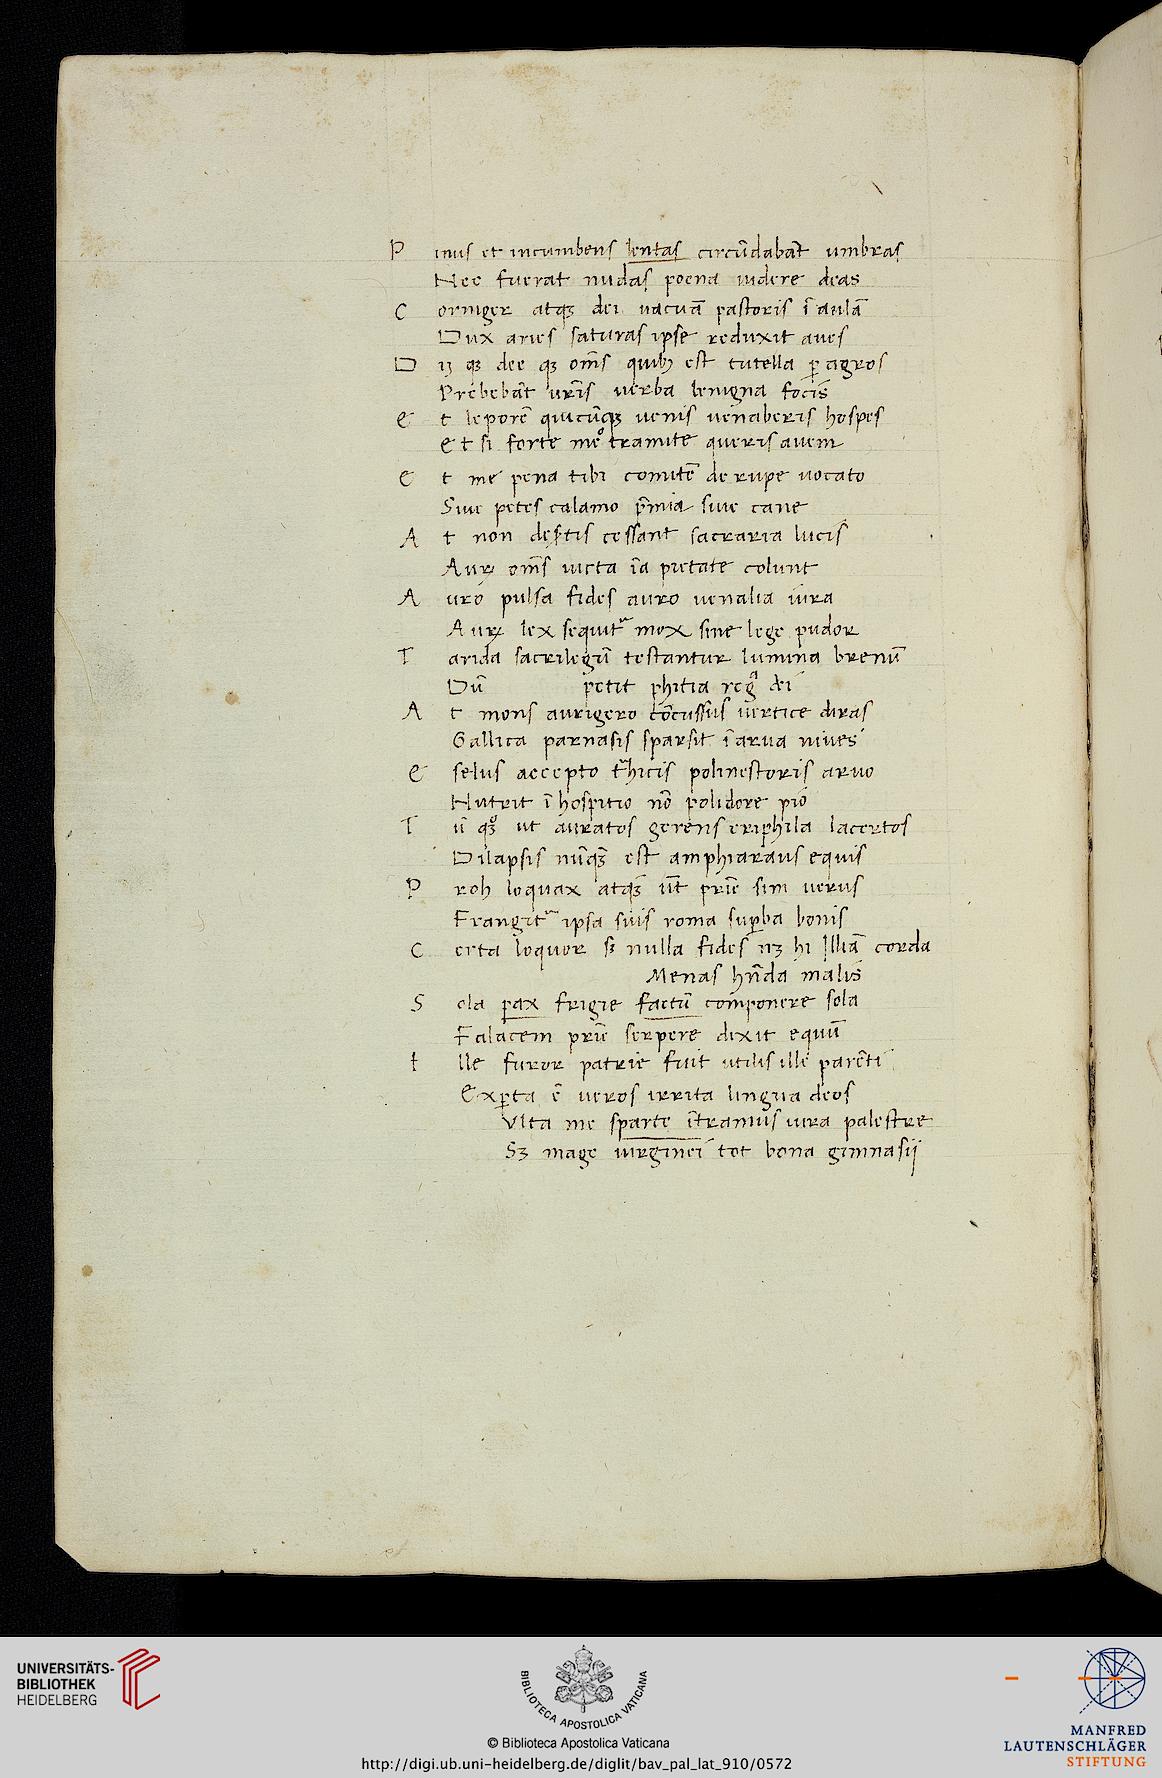 P inus et incumbens lentas circũdabãt umbras
Nec fuerat nudas poena uidere deas
C orniger atqꝫ dei uacuã pastoris ĩ aulã
Dux aries saturas ipse reduxit aues
D ij qꝫ dee qꝫ om̃s quibꝫ est tutella ꝑ agros
Prebebãt ur̃is uerba benigna focis
E t leporẽ quicũqꝫ uenis uenaberis hospes
Et si forte meo tramite queris auem
E t me pena tibi comitẽ de rupe uocato
Siue petes calamo p̃mia siue cane
A t non des̃tis cessant sacraria lucis
Auꝝ om̃s uicta ĩa pietate colunt
A uro pulsa fides auro uenalia iura
Auꝝ lex sequit᷑ mox sine lege pudor
T orida sacrilegũ testantur lumina brenũ
Dũ petit phitia reg̃ dei
A t mons aurigero cõcussus uertice diras
Gallica parnasis sparsit ĩ arua niues
E selus accepto thicis polinestoris aruo
Nutrit ĩ hospitio nõ polidore pio
T ũ qͦꝫ ut auratos gerens eriphila lacertos
Dilapsis nũqꝫ est amphiaraus equis
P roh loquax atqꝫ ut̃ pr̃ie sim uerus
Frangit᷑ ipsa suis roma suꝑba bonis
C erta loquor sꝫ nulla fides nꝫ hi Illiã corda
Menas hñda malis
S ola ꝑax frigie factũ componere sola
Falacem pr̃ie serpere dixit equũ
I lle furor patrie fuit utilis ille parẽti
Exꝑta ẽ ueros irrita lingua deos
Vlta me sparte ĩtramus iura palestre
Sꝫ mage uirginei tot bona gimnasij
UNIVERSITÄTS-
BIBLIOTHEK
HEIDELBERG
BIBLIOTECA APOSTOLICA VATICANA
© Biblioteca Apostolica Vaticana
http://digi.ub.uni-heidelberg.de/diglit/bav_pal_lat_910/0572
MANFRED
LAUTENSCHLÄGER
STIFTUNG